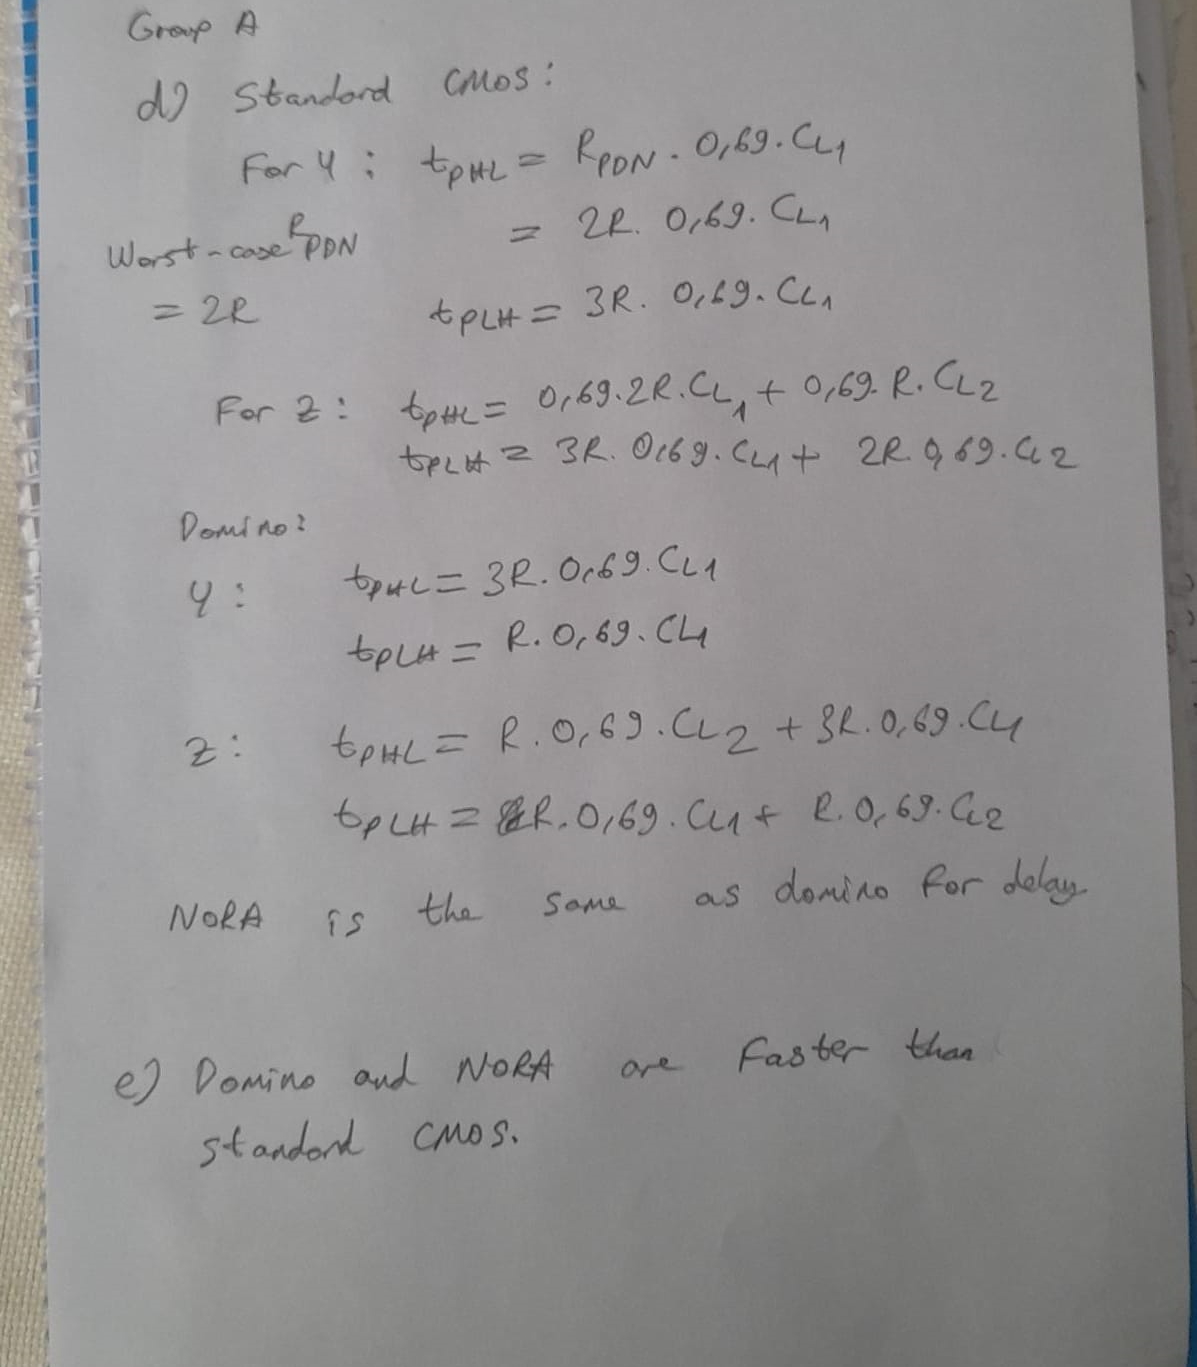 Group A
d) Standard CMOS:
For Y : tPHL = RPDN . 0,69. CL1
Worst-case RPDN = 2R. 0,69. CL1
= 2R tPLH = 3R. 0,69. CL1
For Z : tPHL = 0,69.2R.CL1 + 0,69. R. CL2
tPLH = 3R. 0,69. CL1 + 2R. 0,69. CL2
Domino:
Y : tPHL = 3R. 0,69. CL1
tPLH = R. 0,69. CL1
Z : tPHL = R. 0,69. CL2 + 3R. 0,69. CL1
tPLH = R. 0,69. CL1 + R. 0,69. CL2
NORA is the same as domino for delay
e) Domino and NORA are faster than
standard CMOS.